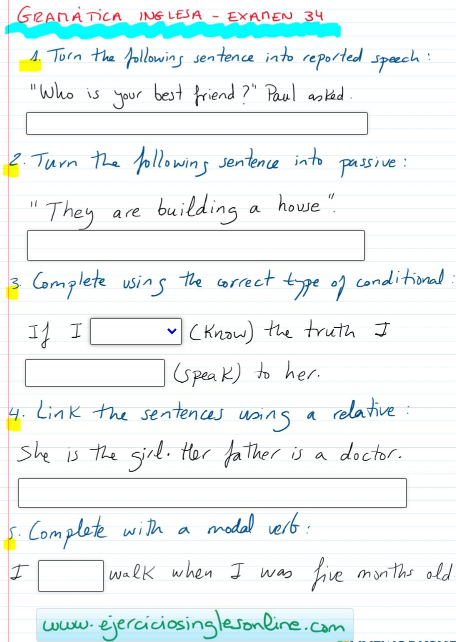 GRAMÁTICA INGLESA - EXAMEN 34
1. Turn the following sentence into reported speech :
"Who is your best friend?" Paul asked.
2. Turn the following sentence into passive :
"They are building a house".
3. Complete using the correct type of conditional :
If I (know) the truth I
(speak) to her.
4. Link the sentences using a relative :
She is the girl. Her father is a doctor.
5. Complete with a modal verb :
I walk when I was five months old
www.ejerciciosinglesonline.com